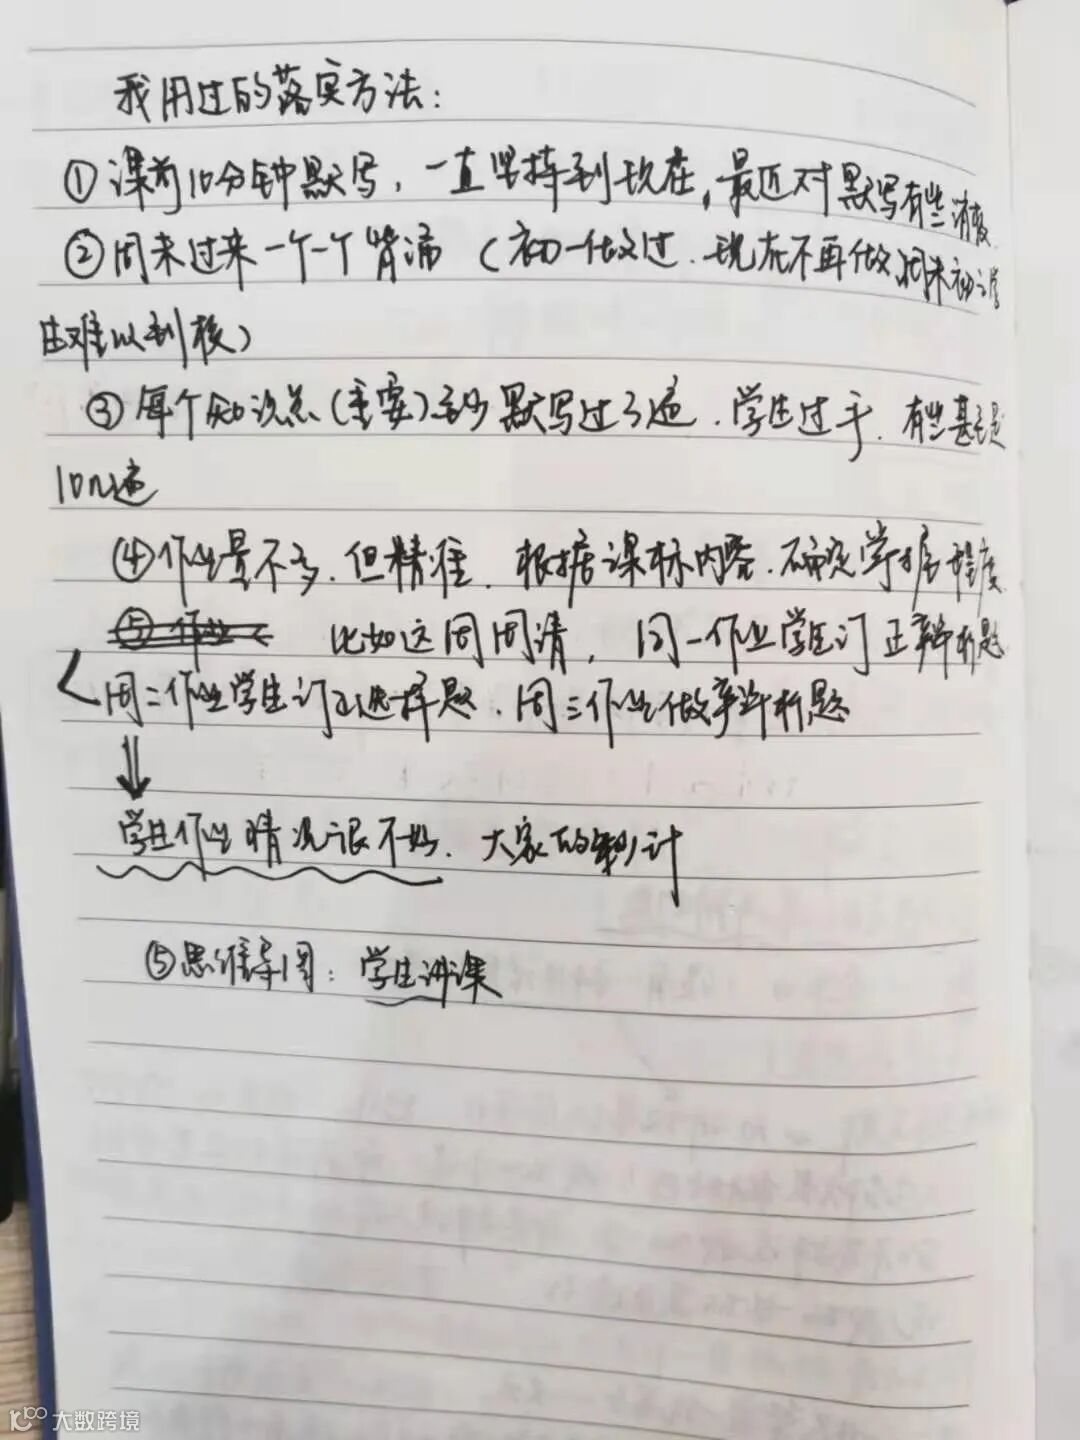 我用过的落实方法：
①课前10分钟默写，一直坚持到现在，最近对默写有些消极
②周末过来一个一个背诵（初一做过.现在不再做,周末初三学
生难以到校）
③每个知识点(重要)至少默写过3遍.学生过手.有些甚至是
10几遍
④作业量不多.但精准.根据课标内容.确定学据程度
⑤作业 比如这周周清，周一作业学生订正辨析题
周二作业学生订正选择题.周三作业做辨析题
⇓
学生作业情况很不好.大家的 计
⑤思维导图：学生讲课
大数跨境